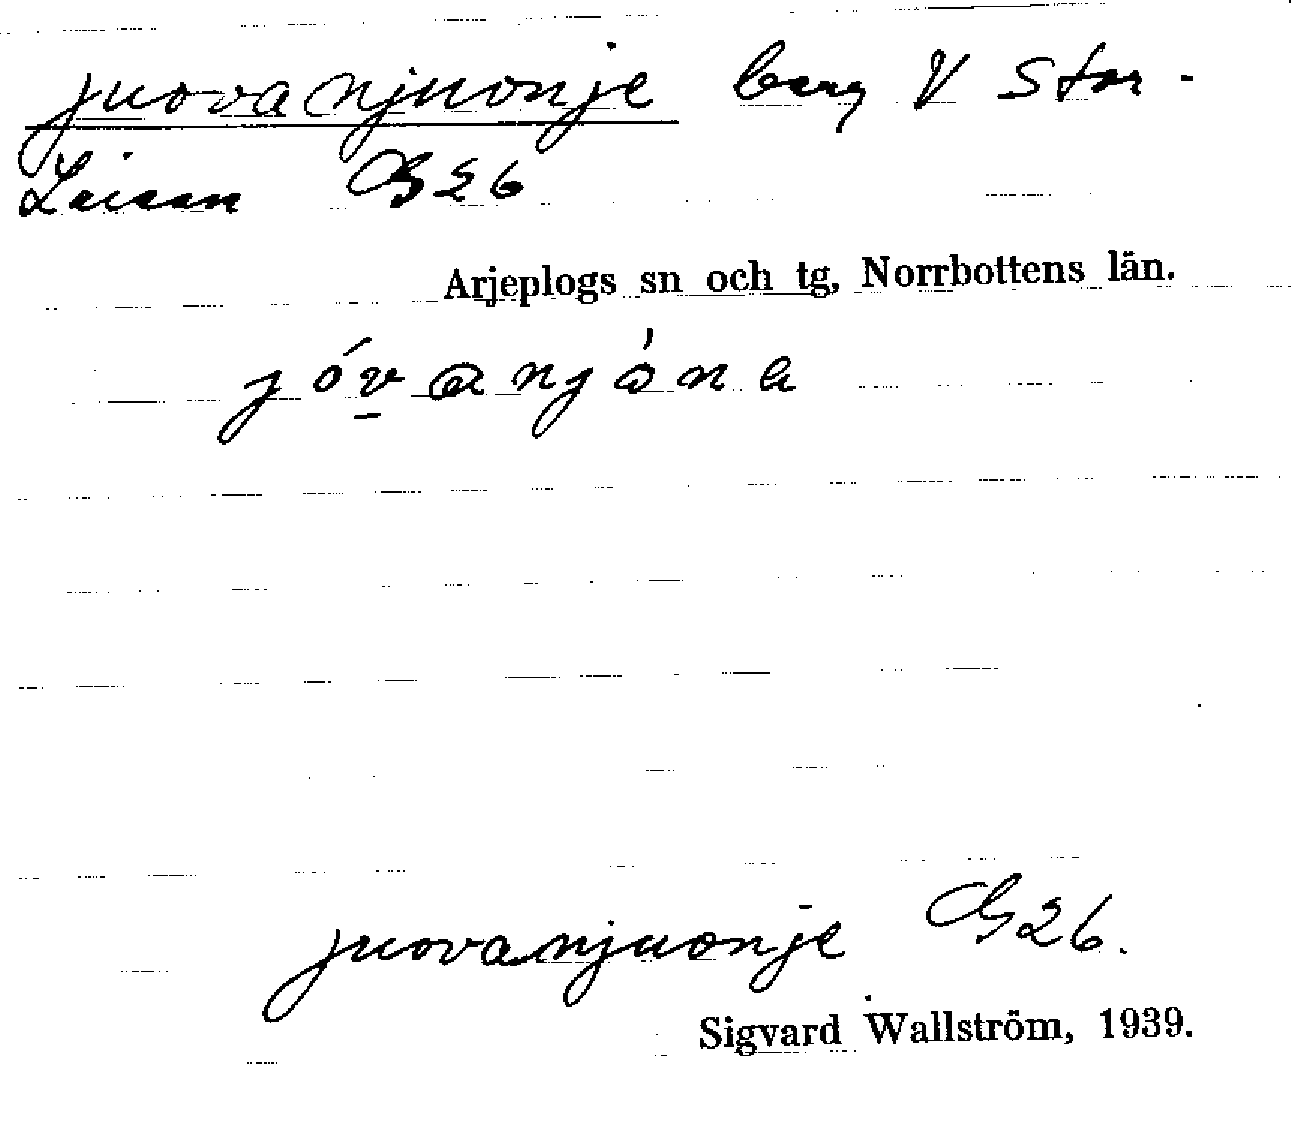 juovanjuonje berg V Stor-
Laisan B26
Arjeplogs sn och tg, Norrbottens län.
jóv̱anjòne
juovanjuonje B26.
Sigvard Wallström, 1939.